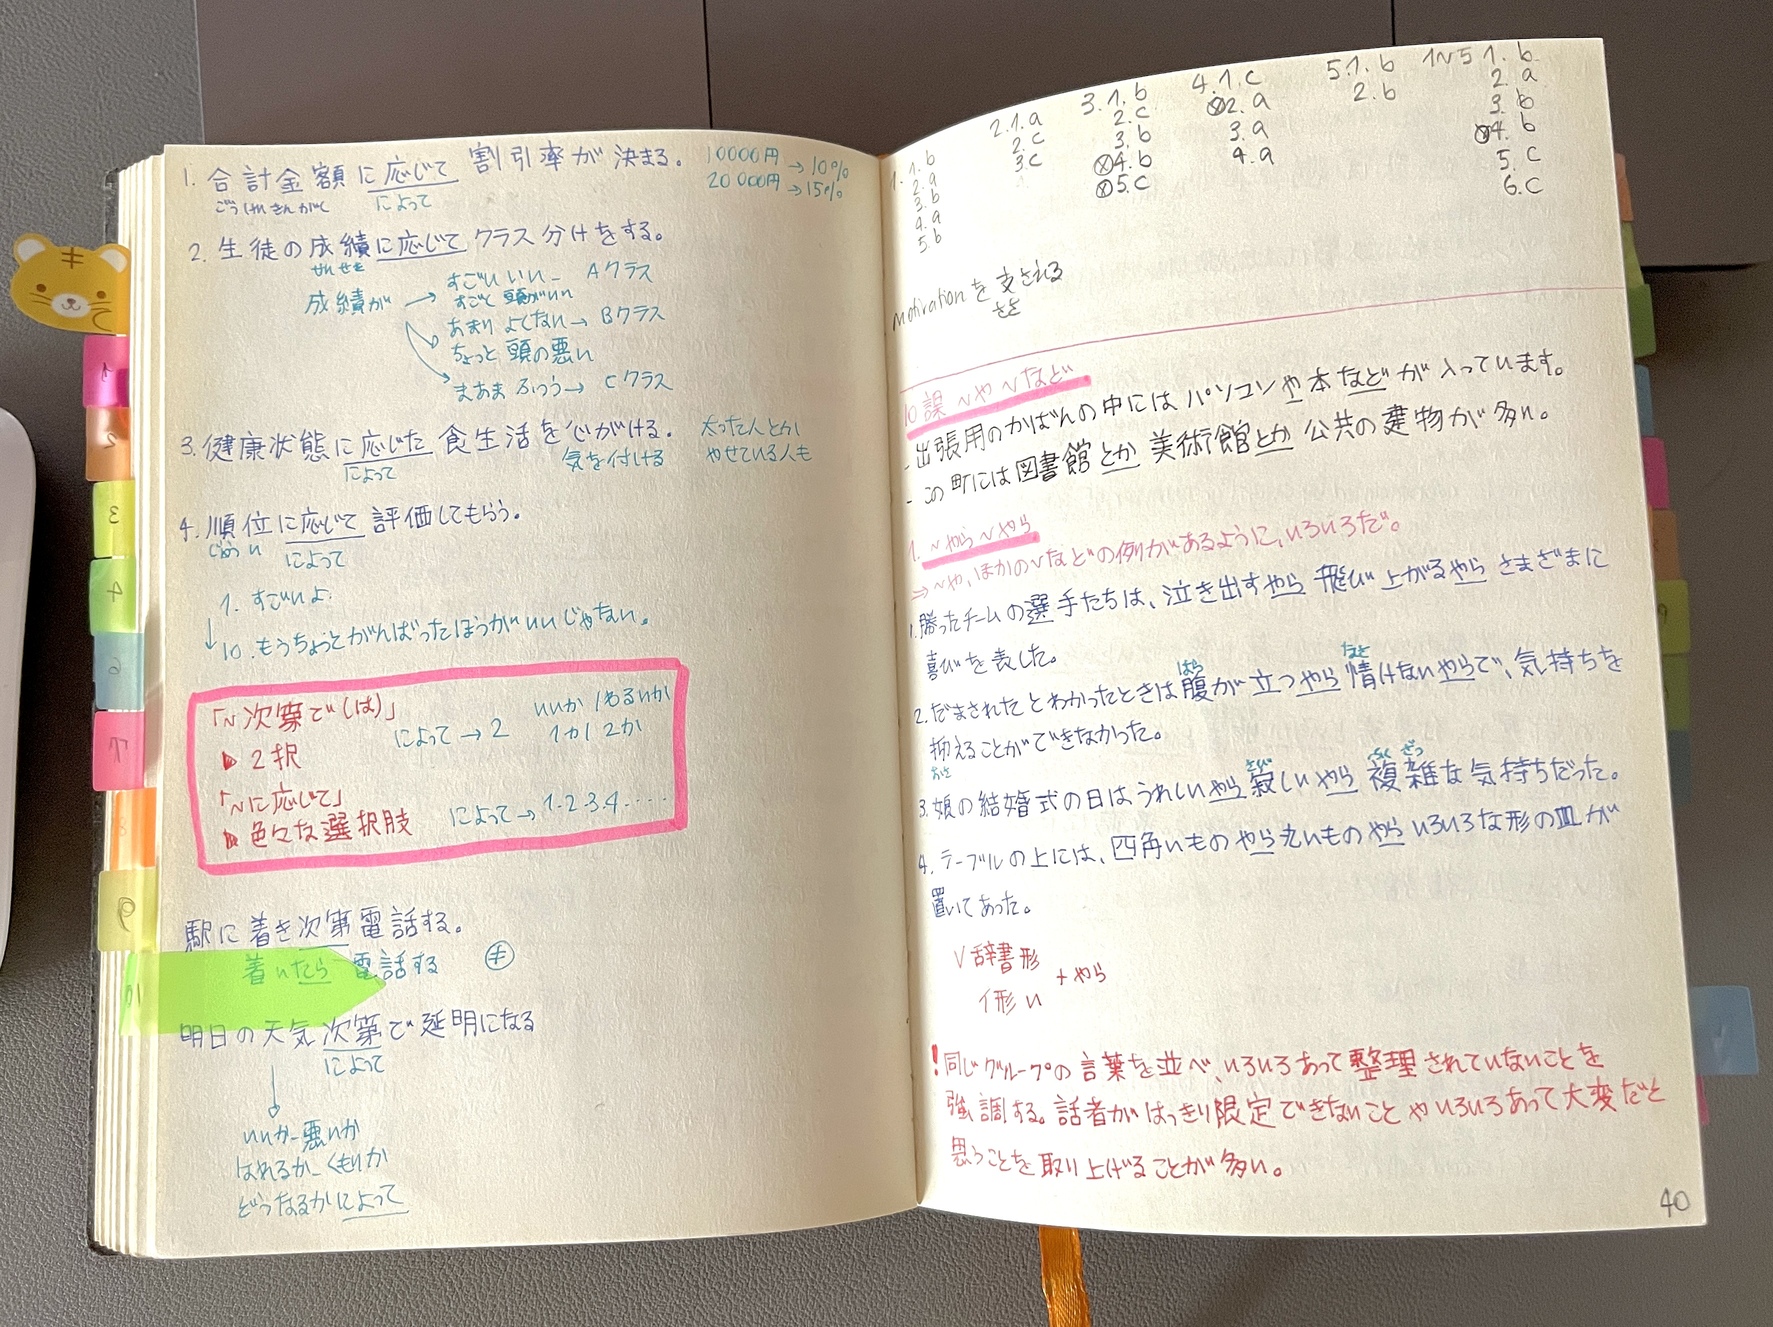 1. 合計金額に応じて割引率が決まる。 10000円→10%
ごうけいきんがく によって 20000円→15%
2. 生徒の成績に応じてクラス分けをする。
せいせき
成績が → すごいいい- Aクラス
すごく頭がいい
あまりよくない→ Bクラス
ちょっと頭の悪い
まあまあふつう→ Cクラス
3. 健康状態に応じた食生活を心がける。 太った人とか
によって 気を付ける やせている人も
4. 順位に応じて評価してもらう。
じゅんい によって
1. すごいよ
↓10. もうちょっとがんばったほうがいいじゃない。
「~次第で(は)」 いいか/わるいか
によって→2 1か/2か
▶2択
「~に応じて」
によって→1.2.3.4.....
▶色々な選択肢
駅に着き次第電話する。
着いたら電話する
10
明日の天気次第で延期になる
によって
↓
いいか-悪いか
はれるか-くもりか
どうなるかによって
1
2
3
4
6
7
8
9
1. 1. b
2. a
3. b
4. a
5. b
2. 1. a
2. c
3. c
3. 1. b
2. c
3. b
ⓧ4. b
ⓧ5. c
4. 1. c
ⓧ2. a
3. a
4. a
5. 1. b
2. b
1~5 1. b
2. a
3. b
ⓧ4. b
5. c
6. c
motivationを支される
ささ
10課 ~や~など
- 出張用のかばんの中にはパソコンや本などが入っています。
- この町には図書館とか美術館とか公共の建物が多い。
1. ~やら~やら
⇒~や、ほかの~などの例があるように、いろいろだ。
1. 勝ったチームの選手たちは、泣き出すやら飛び上がるやらさまざまに
喜びを表した。
はら なさ
2. だまされたとわかったときは腹が立つやら情けないやらで、気持ちを
抑えることができなかった。
おさ
さび ふく ざつ
3. 娘の結婚式の日はうれしいやら寂しいやら複雑な気持ちだった。
4. テーブルの上には、四角いものやら丸いものやらいろいろな形の皿が
置いてあった。
V辞書形
+やら
イ形い
!同じグループの言葉を並べ、いろいろあって整理されていないことを
強調する。話者がはっきり限定できないことやいろいろあって大変だと
思うことを取り上げることが多い。
40